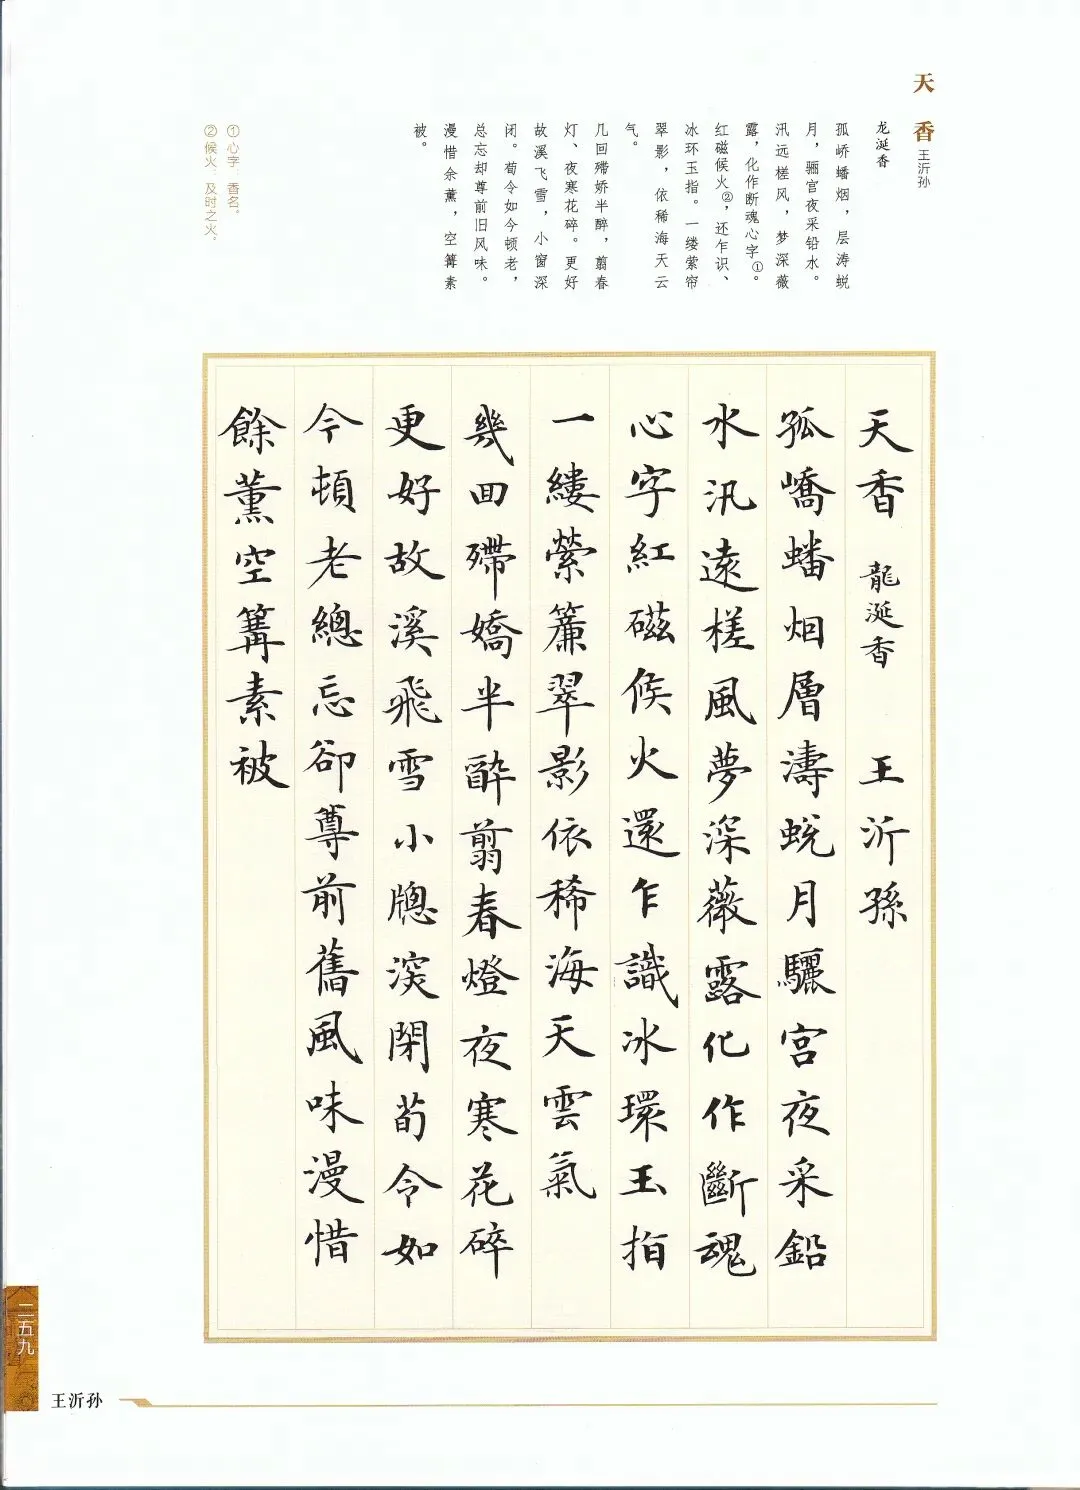 天香
王沂孙
龙涎香
孤峤蟠烟，层涛蜕
月，骊宫夜采铅水。
汛远槎风，梦深薇
露，化作断魂心字①。
红磁候火②，还乍识、
冰环玉指。一缕萦帘
翠影，依稀海天云
气。
几回殢娇半醉，翦春
灯、夜寒花碎。更好
故溪飞雪，小窗深
闭。荀令如今顿老，
总忘却尊前旧风味。
漫惜余薰，空篝素
被。
①心字：香名。
②候火：及时之火。
天香 龍涎香 王沂孫
孤嶠蟠烟層濤蛻月驪宮夜采鉛
水汛遠槎風夢深薇露化作斷魂
心字紅磁候火還乍識冰環玉指
一縷縈簾翠影依稀海天雲氣
幾回殢嬌半醉翦春燈夜寒花碎
更好故溪飛雪小牕深閉荀令如
今頓老總忘卻尊前舊風味漫惜
餘薰空篝素被
二五九
王沂孙